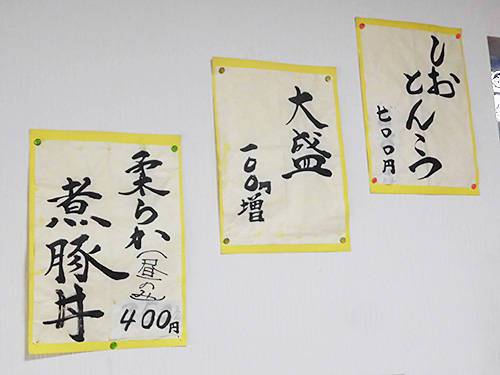 しお
とんこつ
七〇〇円
大盛
一〇〇円増
柔らか(昼のみ)
煮豚丼
400円